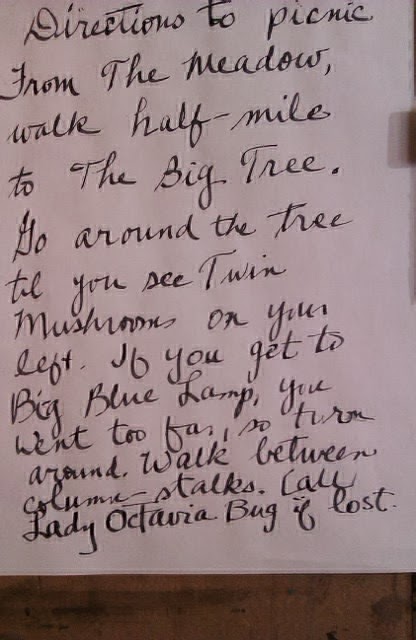 Directions to picnic
From The Meadow,
walk half-mile
to The Big Tree.
Go around the tree
til you see Twin
Mushrooms on your
left. If you get to
Big Blue Lamp, you
went too far, so turn
around. Walk between
column-stalks. Call
Lady Octavia Bug if lost.